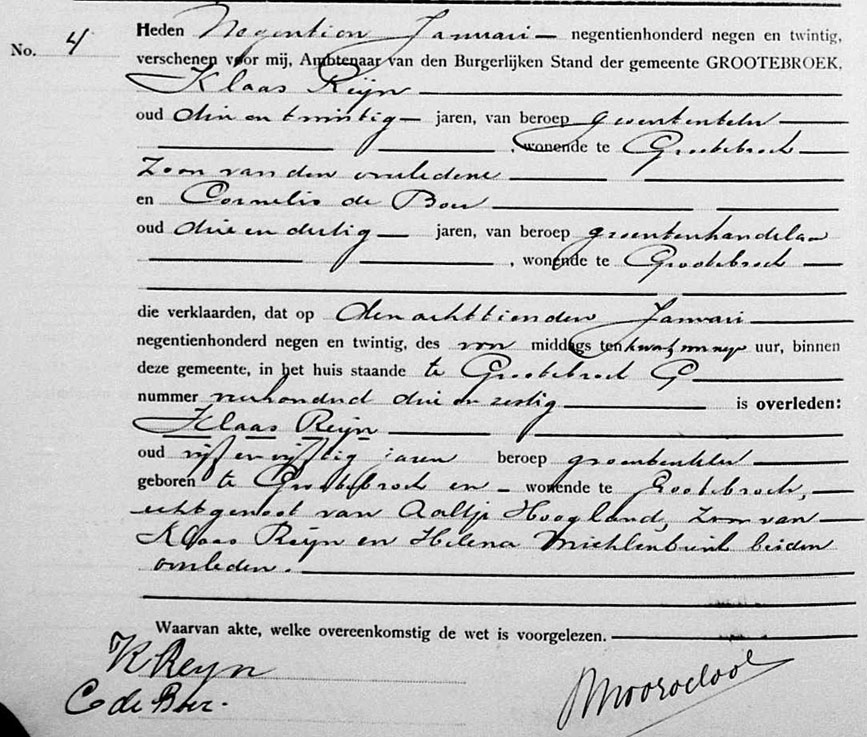 No. 4
Heden Negentien Januari negentienhonderd negen en twintig,
verschenen voor mij, Ambtenaar van den Burgerlijken Stand der gemeente GROOTEBROEK,
Klaas Reijn
oud drie en twintig jaren, van beroep groententeler
, wonende te Grootebroek
Zoon van den overledene
en Cornelis de Boer
oud drie en dertig jaren, van beroep groentenhandelaar
, wonende te Grootebroek
die verklaarden, dat op den achttienden Januari
negentienhonderd negen en twintig, des voor middags ten kwart over uur, binnen
deze gemeente, in het huis staande te Grootebroek G
nummer vierhonderd drie en zestig is overleden:
Klaas Reijn
oud vijf en vijftig jaren beroep groententeler
geboren te Grootebroek en wonende te Grootebroek,
echtgenoot van Aaltje Hoogland, Zoon van
Klaas Reijn en Helena beiden
overleden.
Waarvan akte, welke overeenkomstig de wet is voorgelezen.
K Reyn
C de Boer.